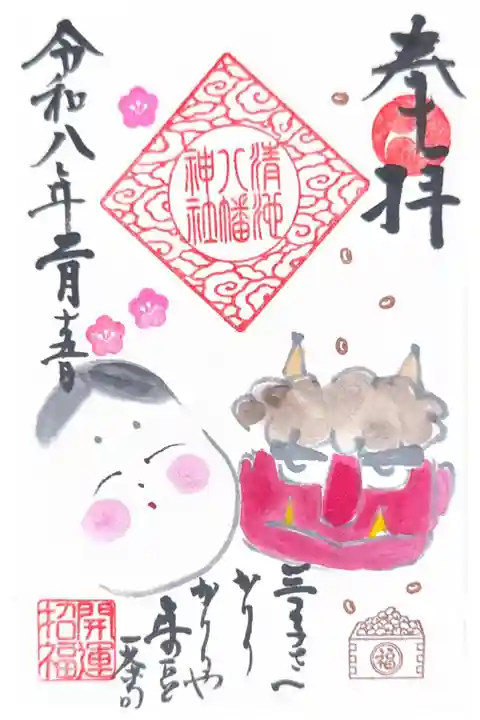 奉拝
清池
八幡
神社
令和八年二月
三つ子さへ
かりり
かりりや
年の豆
一茶の句
開運
招福
福